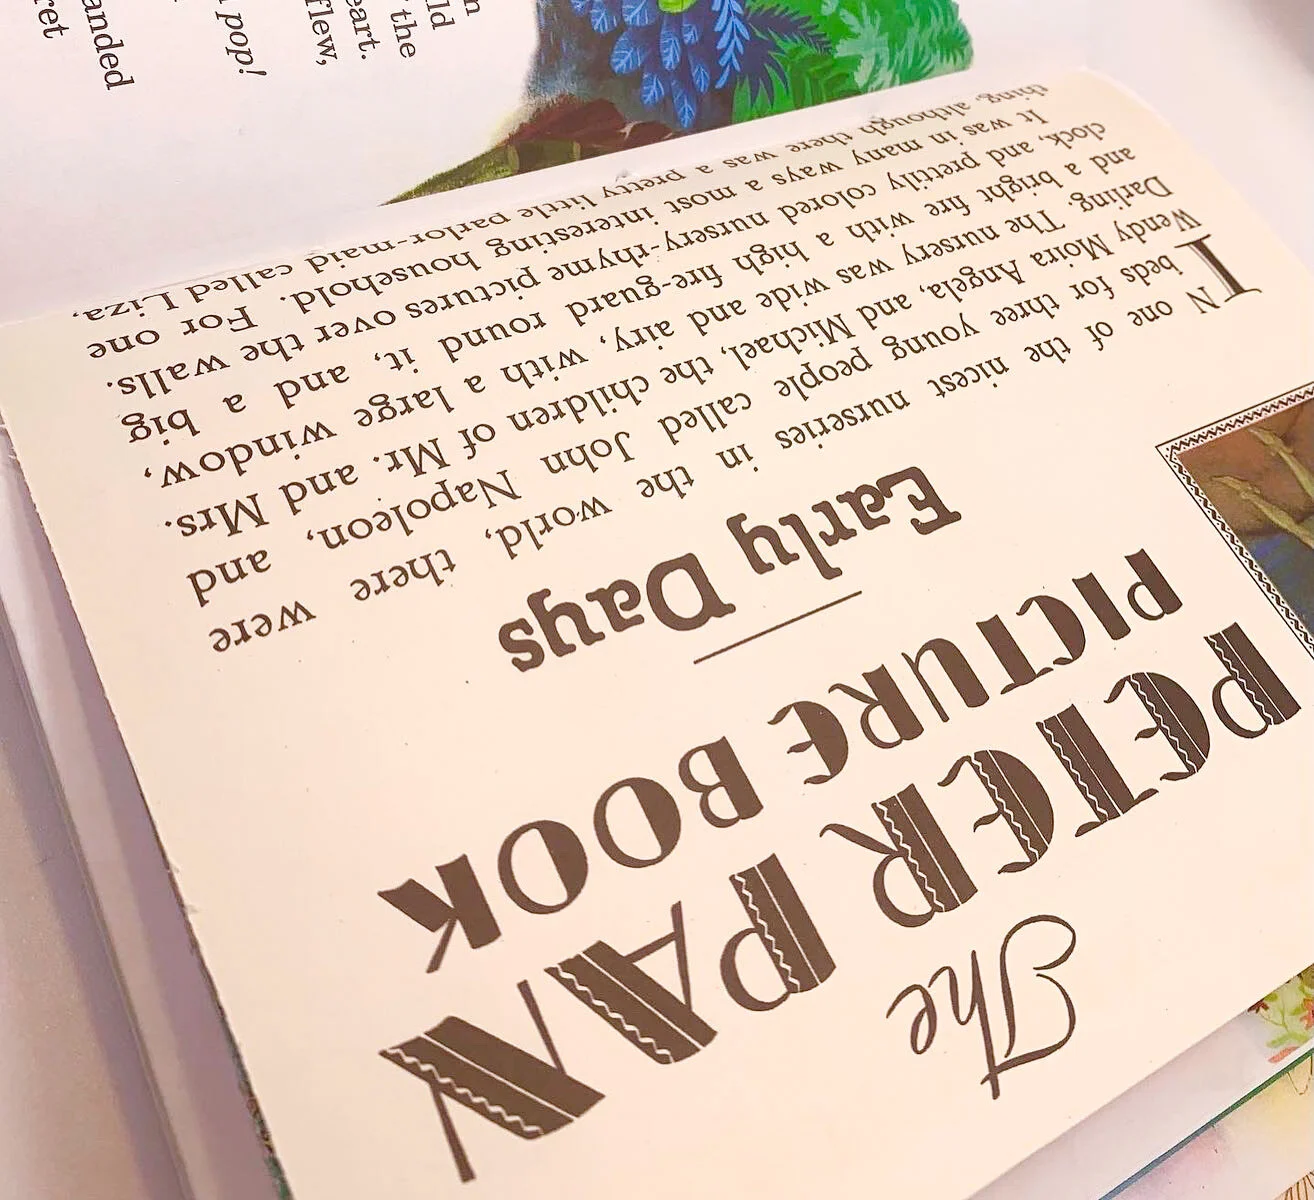 The
PETER PAN
PICTURE BOOK
Early Days
IN one of the nicest nurseries in the world, there were
beds for three young people called John Napoleon, and
Wendy Moira Angela, and Michael, the children of Mr. and Mrs.
Darling. The nursery was wide and airy, with a large window,
and a bright fire with a high fire-guard round it, and a big
clock, and prettily colored nursery-rhyme pictures over the walls.
It was in many ways a most interesting household. For one
thing, although there was a pretty little parlor-maid called Liza,
ld
the
eart.
flew,
pop!
anded
ret